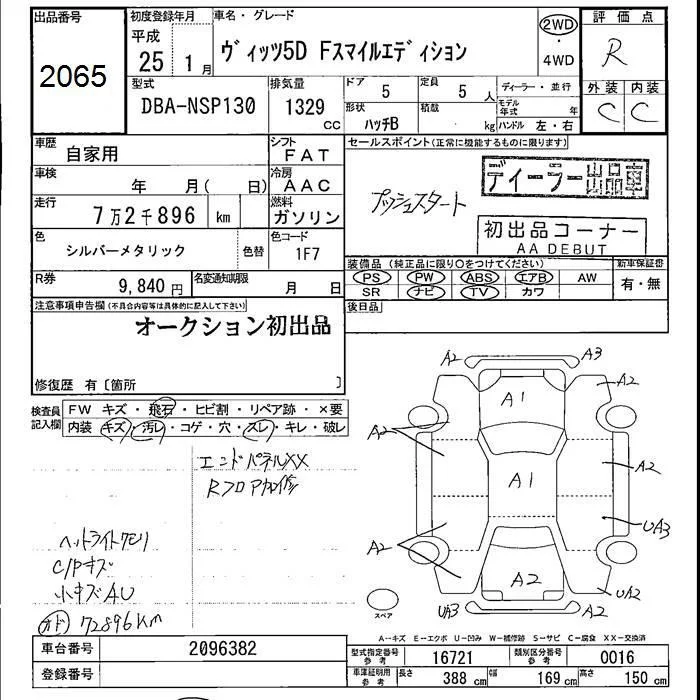 出品番号
2065
初度登録年月
平成
25 1 月
車名・グレード
ヴィッツ5D Fスマイルエディション
2WD
・
4WD
評価点
R
型式
DBA-NSP130
排気量
1329 CC
ドア 5
定員 5 人
ディーラー・並行
外装 内装
C C
形状
ハッチB
積載 kg
モデル年式 年
ハンドル 左・右
車歴
自家用
シフト
FAT
セールスポイント(正常に機能するものに限ります)
車検
年 月( 日)
冷房
AAC
プッシュスタート
ディーラー出品車
走行
7万2千896 km
燃料
ガソリン
初出品コーナー
AA DEBUT
色
シルバーメタリック
色替
色コード
1F7
装備品(純正品に限り○をつけてください)
新車保証書
PS PW ABS エアB AW
有・無
SR ナビ TV カワ
R券
9,840 円
名変通知期限
月 日
後日品
注意事項申告欄(不具合内容等は具体的に記入して下さい)
オークション初出品
修復歴 有〔箇所 〕
検査員記入欄
FW キズ・飛石・ヒビ割・リペア跡・×要
内装 キズ・汚レ・コゲ・穴・スレ・キレ・破レ
エンドパネルXX
RフロアカロI修
ヘットライトクモリ
C/Pキズ
小キズAU
オド 72896Km
A2 A3
A2
A1
A2
A1
A2
A2
UA3
A2
UA3
A2
UA2
スペア
A-キズ E-エクボ U-凹み W-補修跡 S-サビ C-腐食 XX-交換済
車台番号
2096382
型式指定番号
参考
16721
類別区分番号
参考
0016
登録番号
車庫証明用
参考
長さ 388 cm
幅 169 cm
高さ 150 cm